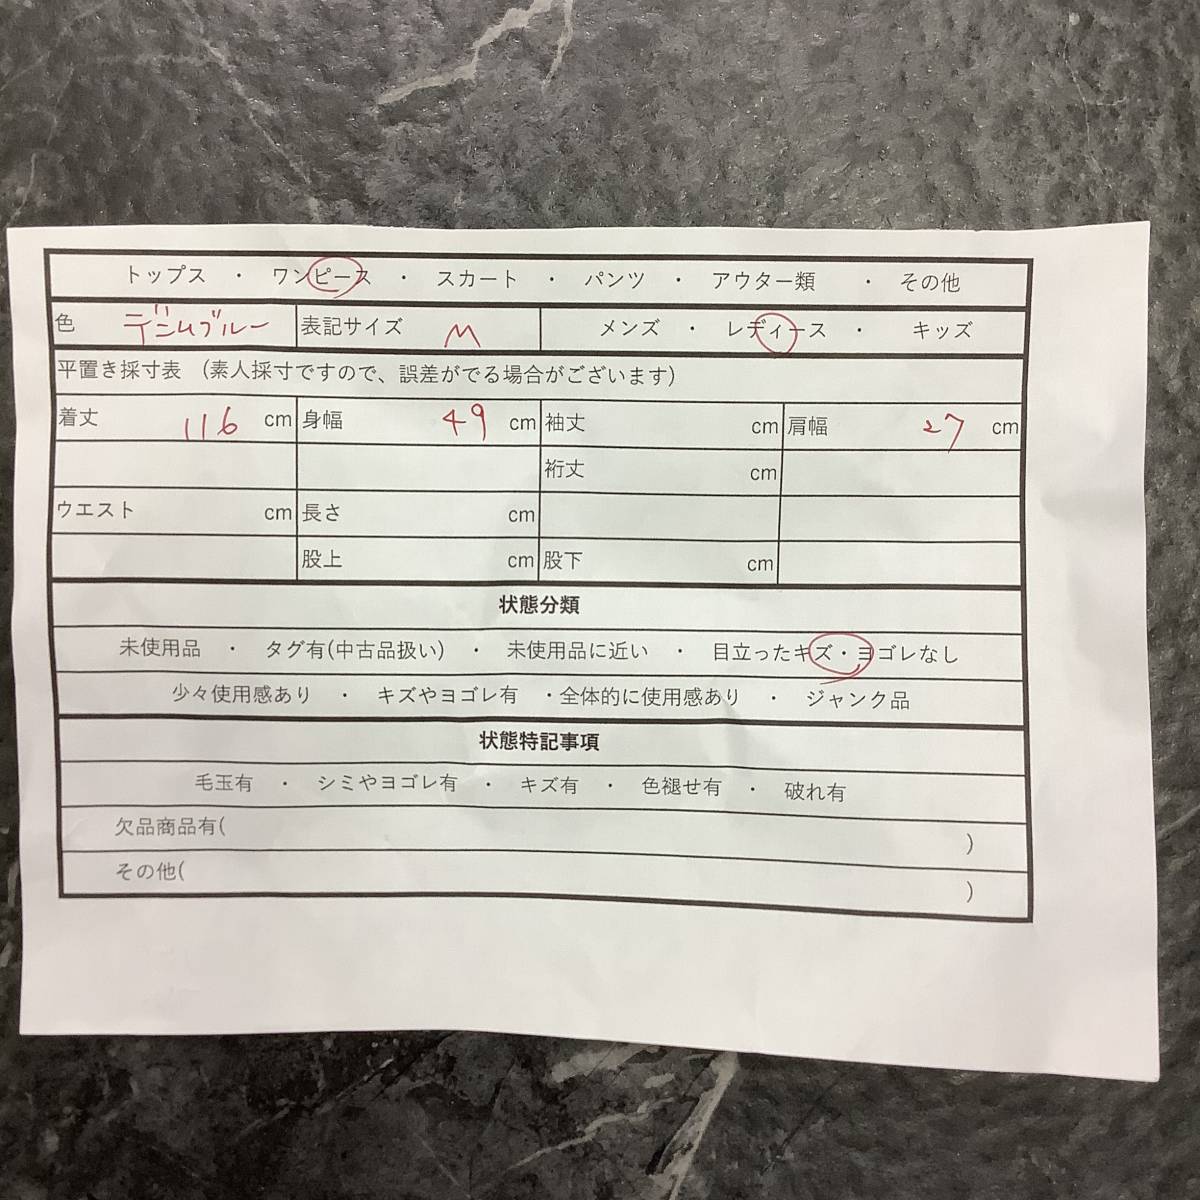 トップス ・ ワンピース ・ スカート ・ パンツ ・ アウター類 ・ その他
色 デニムブルー 表記サイズ M メンズ ・ レディース ・ キッズ
平置き採寸表 (素人採寸ですので、誤差がでる場合がございます)
着丈 116 cm 身幅 49 cm 袖丈 cm 肩幅 27 cm
裄丈 cm
ウエスト cm 長さ cm
股上 cm 股下 cm
状態分類
未使用品 ・ タグ有(中古品扱い) ・ 未使用品に近い ・ 目立ったキズ・ヨゴレなし
少々使用感あり ・ キズやヨゴレ有 ・全体的に使用感あり ・ ジャンク品
状態特記事項
毛玉有 ・ シミやヨゴレ有 ・ キズ有 ・ 色褪せ有 ・ 破れ有
欠品商品有( )
その他( )